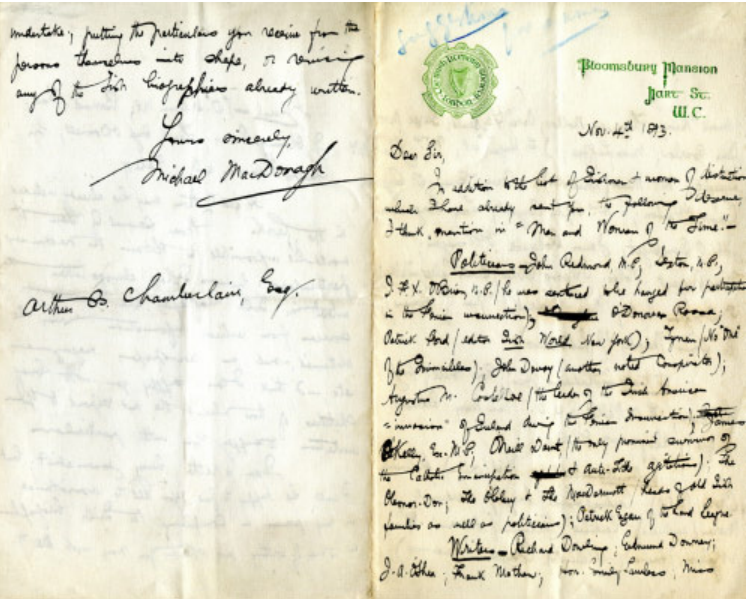 undertake; putting the particulars you receive from the
persons themselves into shape, or revising
any of the Irish biographies already written.
Yours sincerely,
Michael MacDonagh
Arthur B. Chamberlain, Esq.
Suggestions
Bloomsbury Mansion
Hart St.
W.C.
Nov. 4th 1893.
Dear Sir,
In addition to the list of Irishmen & women of distinction
which I have already sent you, the following deserve,
I think, mention in "Men and Women of the Time":-
Politicians - John Redmond, M.P.; Sexton, M.P.;
J.F.X. O'Brien, M.P. (he was sentenced to be hanged for participation
in the Fenian insurrection); O'Donovan Rossa;
Patrick Ford (editor Irish World New York); Tynan (No "One"
of the Invincibles); John Devoy (another noted Conspirator);
Augustus M. Costelloe (the leader of the Irish American
"invasion" of Ireland during the Fenian Insurrection); James
O'Kelly, Ex-M.P.; O'Neill Daunt (the only prominent survivor of
the Catholic Emancipation & Anti-Tithe agitations); The
O'Conor-Don; The & The MacDermott (heads of old Irish
families as well as politicians); Patrick Egan of the Land League.
Writers - Richard Dowling; Edmund Downey;
J.A. O'Shea; Frank Mathew; Hon. Emily Lawless; Miss